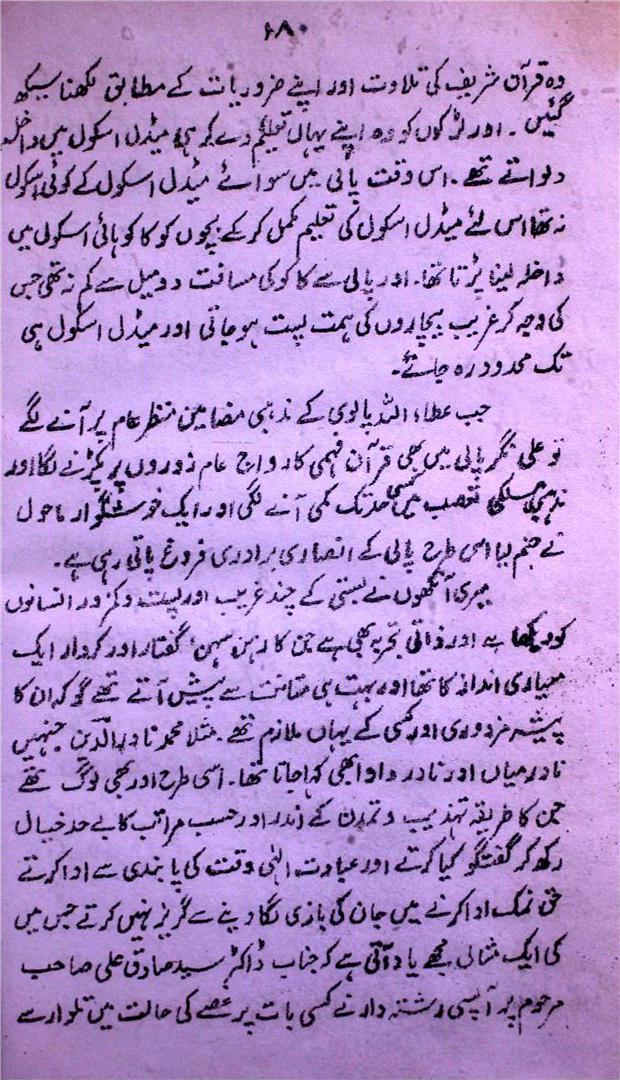 ۶۸
وہ قرآن شریف کی تلاوت اور اپنے ضروریات کے مطابق لکھنا سیکھ
گئیں۔ اور لڑکوں کو وہ اپنے یہاں تعلیم دے کر ہی میڈل اسکول میں داخلہ
دلواتے تھے۔ اس وقت پالی میں سوائے میڈل اسکول کے کوئی اسکول
نہ تھا اس لئے میڈل اسکول کی تعلیم مکمل کر کے بچوں کو کاکو ہائی اسکول میں
داخلہ لینا پڑتا تھا۔ اور پالی سے کاکو کی مسافت دو میل سے کم نہ تھی جس
کی وجہ کر غریب بیچاروں کی ہمت پست ہو جاتی اور میڈل اسکول ہی
تک محدود رہ جاتے۔
جب عطاء اللہ پالوی کے مذہبی مضامین منظر عام پر آنے لگے
تو علی نگر پالی میں بھی قرآن فہمی کا رواج عام زوروں پر پکڑنے لگا اور
مذہبی مسلکی تعصب میں کسی حد تک کمی آنے لگی اور ایک خوشگوار ماحول
نے جنم لیا اسی طرح پالی کے انصاری برادری فروغ پاتی رہی ہے۔
میری آنکھوں نے بستی کے چند غریب اور پست و کمزور انسانوں
کو دیکھا ہے اور ذاتی تجربہ بھی ہے جن کا رہن سہن، گفتار اور کردار ایک
معیاری انداز کا تھا اور بہت ہی متانت سے پیش آتے تھے گو کہ ان کا
پیشہ مزدوری اور کسی کے یہاں ملازم تھے۔ مثلا محمد نادر الدین جنہیں
نادر میاں اور نادر دادا بھی کہا جاتا تھا۔ اسی طرح اور بھی لوگ تھے
جن کا طریقہ تہذیب و تمدن کے اندر اور حسب مراتب کا بے حد خیال
رکھ کر گفتگو کیا کرتے اور عبادت الٰہی وقت کی پابندی سے ادا کرتے
حق نمک ادا کرنے میں جان کی بازی لگا دینے سے گریز نہیں کرتے جس میں
کی ایک مثال مجھے یاد آتی ہے کہ جناب ڈاکٹر سید صادق علی صاحب
مرحوم پر آپسی رشتہ دار نے کسی بات پر غصے کی حالت میں تلوار سے